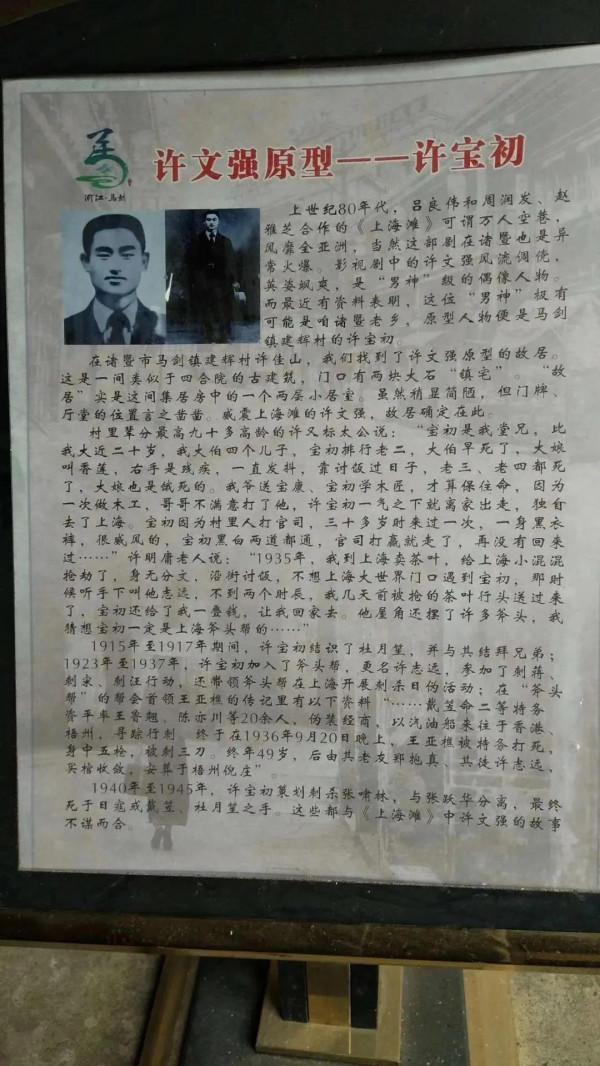 许文强原型——许宝初
浙江·马剑
上世纪80年代，吕良伟和周润发、赵
雅芝合作的《上海滩》可谓万人空巷，
风靡全亚洲，当然这部剧在诸暨也是异
常火爆。影视剧中的许文强风流倜傥，
英姿飒爽，是“男神”级的偶像人物。
而最近有资料表明，这位“男神”极有
可能是咱诸暨老乡，原型人物便是马剑
镇建辉村的许宝初。
在诸暨市马剑镇建辉村许佳山，我们找到了许文强原型的故居。
这是一间类似于四合院的古建筑，门口有两块大石“镇宅”。“故
居”实是这间集居房中的一个两层小居室。虽然稍显简陋，但门牌、
厅堂的位置言之凿凿。威震上海滩的许文强，故居确定在此。
村里辈分最高九十多高龄的许又标太公说：“宝初是我堂兄，比
我大近二十岁，我大伯四个儿子，宝初排行老二，大伯早死了，大娘
叫香莲，右手是残疾，一直发抖，靠讨饭过日子，老三、老四都死
了，大娘也是饿死的。我爷送宝康、宝初学木匠，才算保住命，因为
一次做木工，哥哥不满意打了他，许宝初一气之下就离家出走，独自
去了上海。宝初因为村里人打官司，三十多岁时来过一次，一身黑衣
裤，很威风的，宝初黑白两道都通，官司打赢就走了，再没有回来
过……”许明庸老人说：“1935年，我到上海卖茶叶，给上海小混混
抢劫了，身无分文，沿街讨饭，不想上海大世界门口遇到宝初，那时
候听手下叫他志远，不到两个时辰，我几天前被抢的茶叶行头送过来
了，宝初还给了我一叠钱，让我回家去。他屋角还摆了许多斧头，我
猜想宝初一定是上海斧头帮的……”
1915年至1917年期间，许宝初结识了杜月笙，并与其结拜兄弟；
1923年至1937年，许宝初加入了斧头帮，更名许志远，参加了刺蒋、
刺宋、刺汪行动，还带领斧头帮在上海开展刺杀日伪活动；在“斧头
帮”的帮会首领王亚樵的传记里有以下资料“……戴笠命二等特务
资平率王鲁翘、陈亦川等20余人，伪装经商，以汽油船来往于香港、
梧州，寻踪行刺 终于在1936年9月20日晚上，王亚樵被特务打死，
身中五枪，被刺三刀。终年49岁，后由其老友郑抱真、其徒许志远，
买棺收敛，安葬于梧州倪庄”。
1940年至1945年，许宝初策划刺杀张啸林，与张跃华分离，最终
死于日寇或戴笠、杜月笙之手。这些都与《上海滩》中许文强的故事
不谋而合。